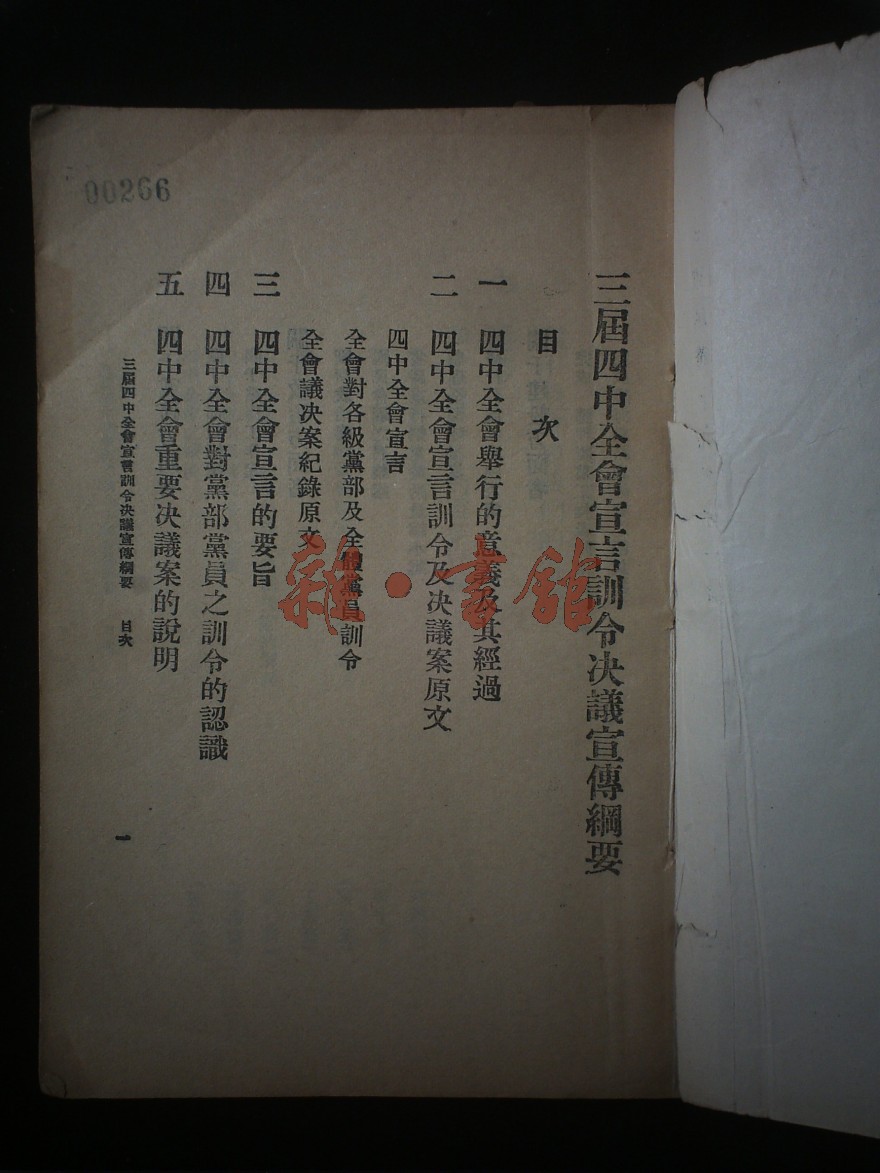 三屆四中全會宣言訓令决議宣傳綱要
目次
一 四中全會舉行的意義及其經過
二 四中全會宣言訓令及决議案原文
四中全會宣言
全會對各級黨部及全體黨員訓令
全會議决案紀錄原文
三 四中全會宣言的要旨
四 四中全會對黨部黨員之訓令的認識
五 四中全會重要决議案的說明
三屆四中全會宣言訓令决議宣傳綱要 目次 一
00266
雜·書館